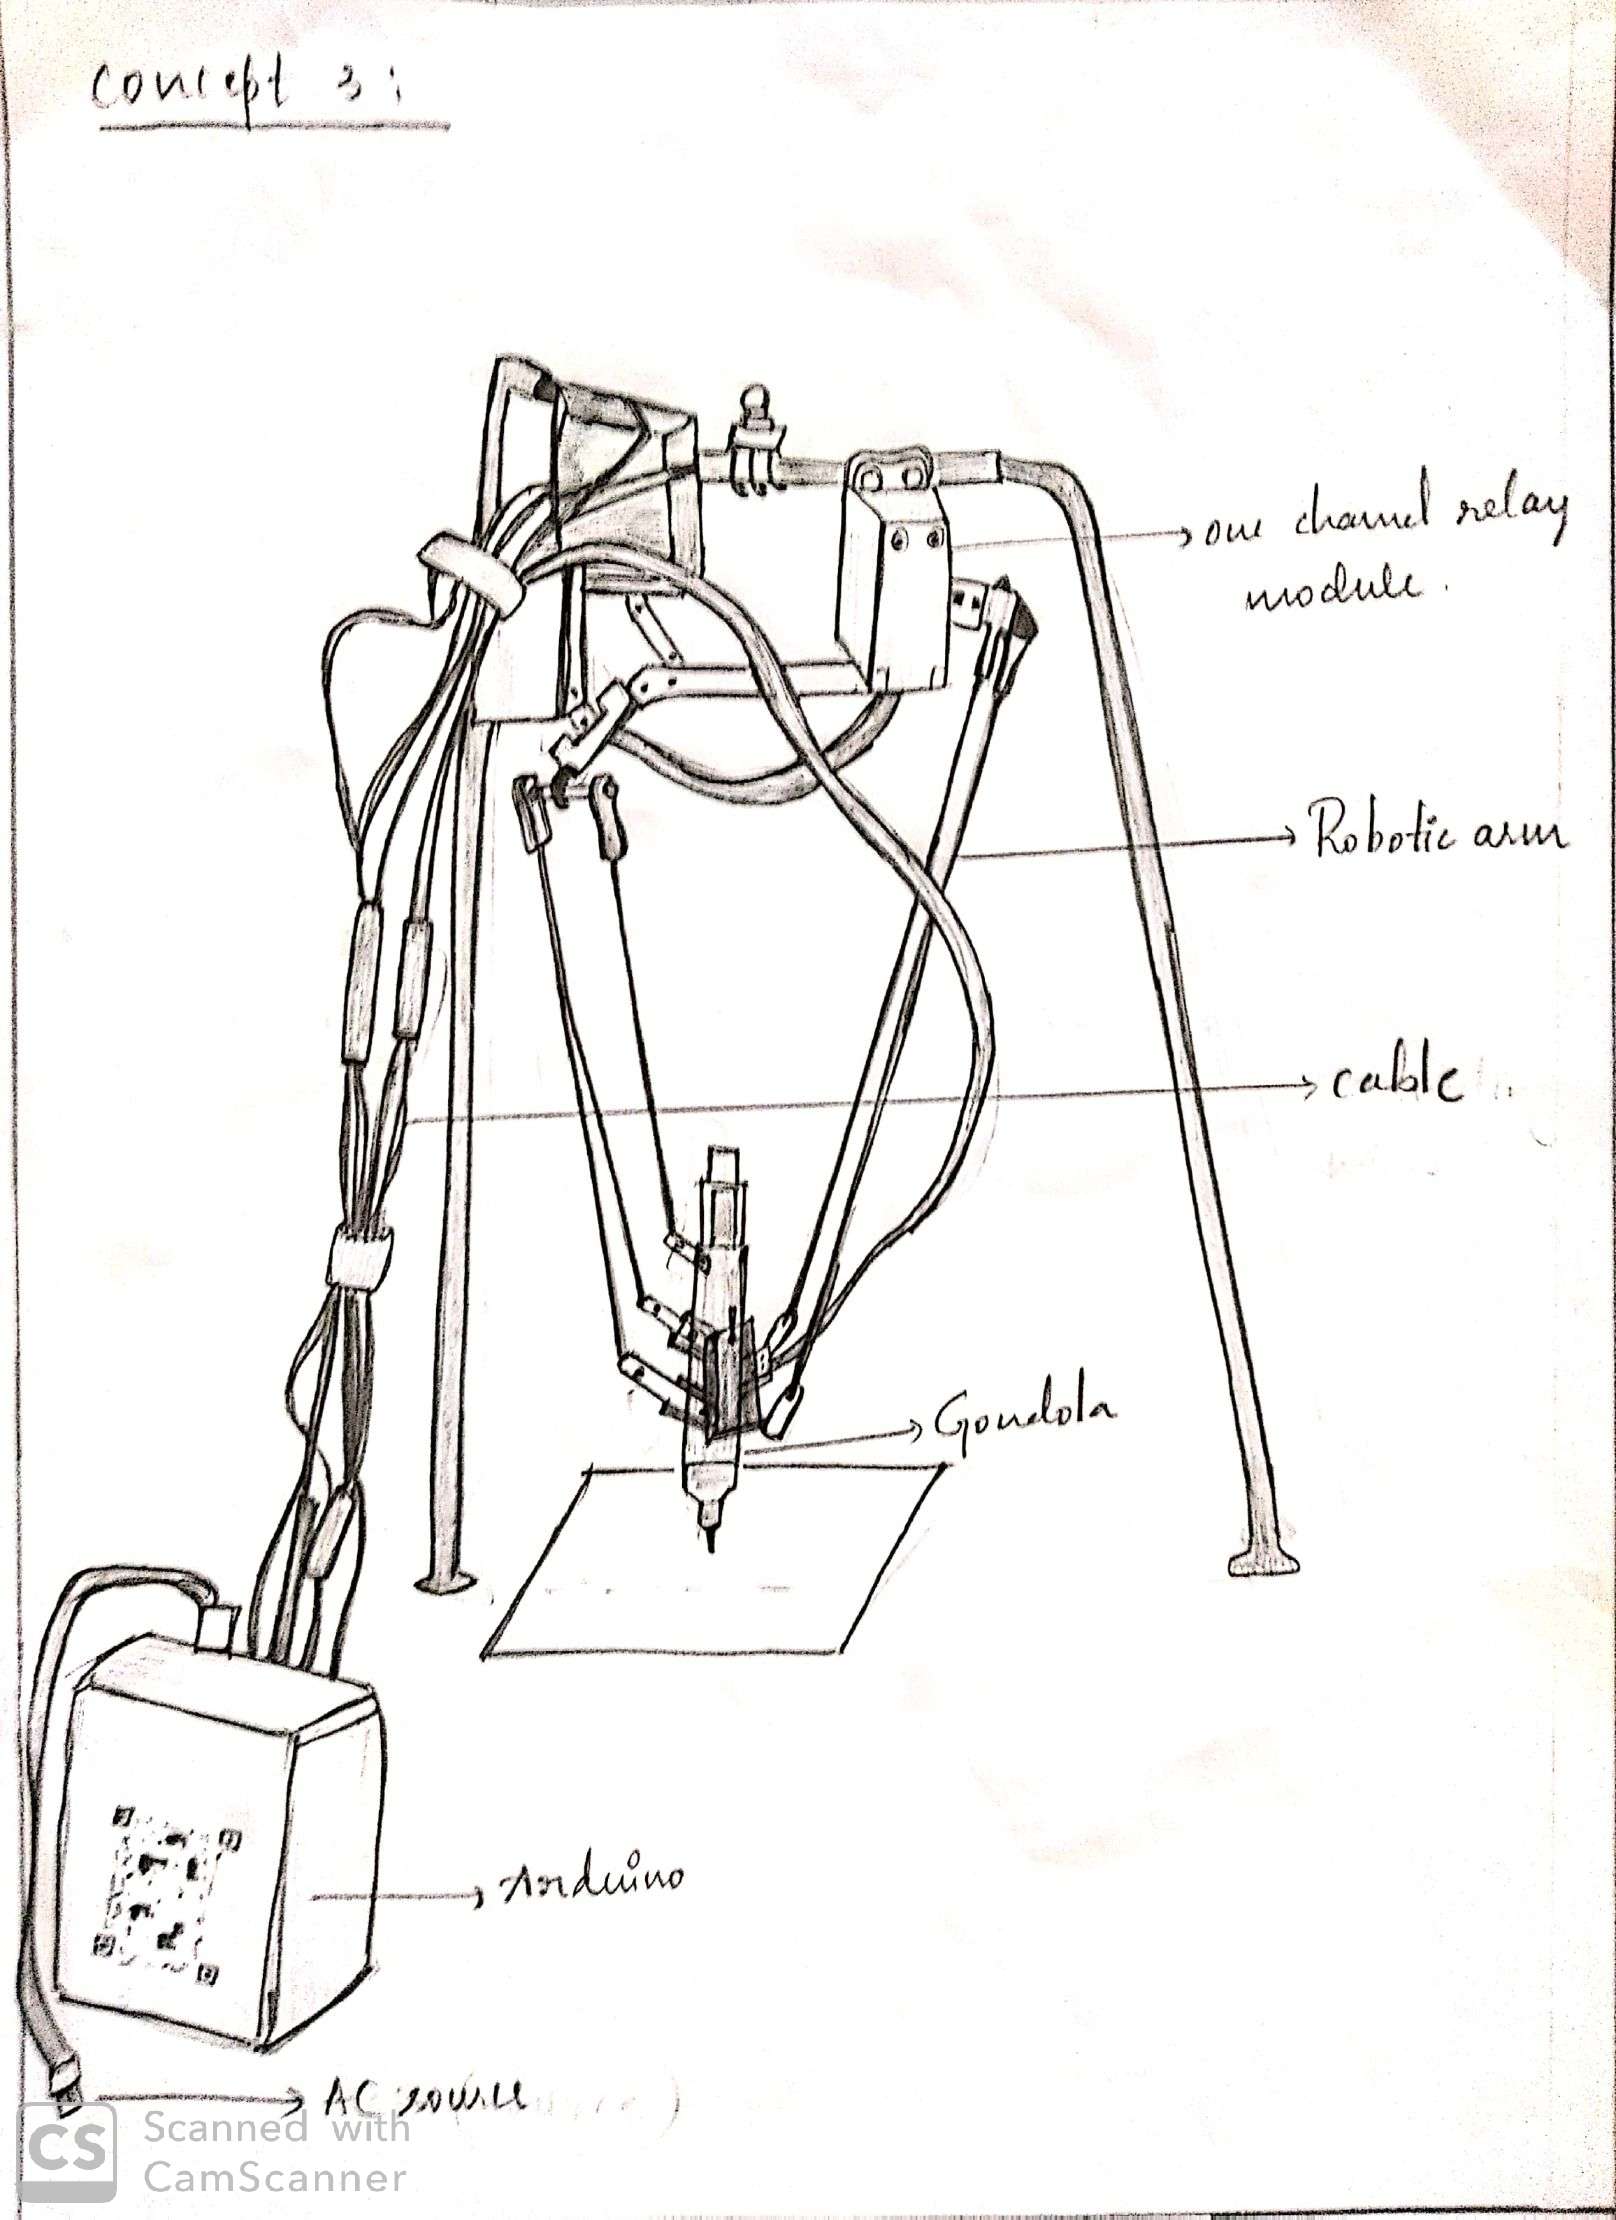 Concept 3:
one channel relay
module.
Robotic arm
cable
Gondola
Arduino
AC source
CS
Scanned with
CamScanner